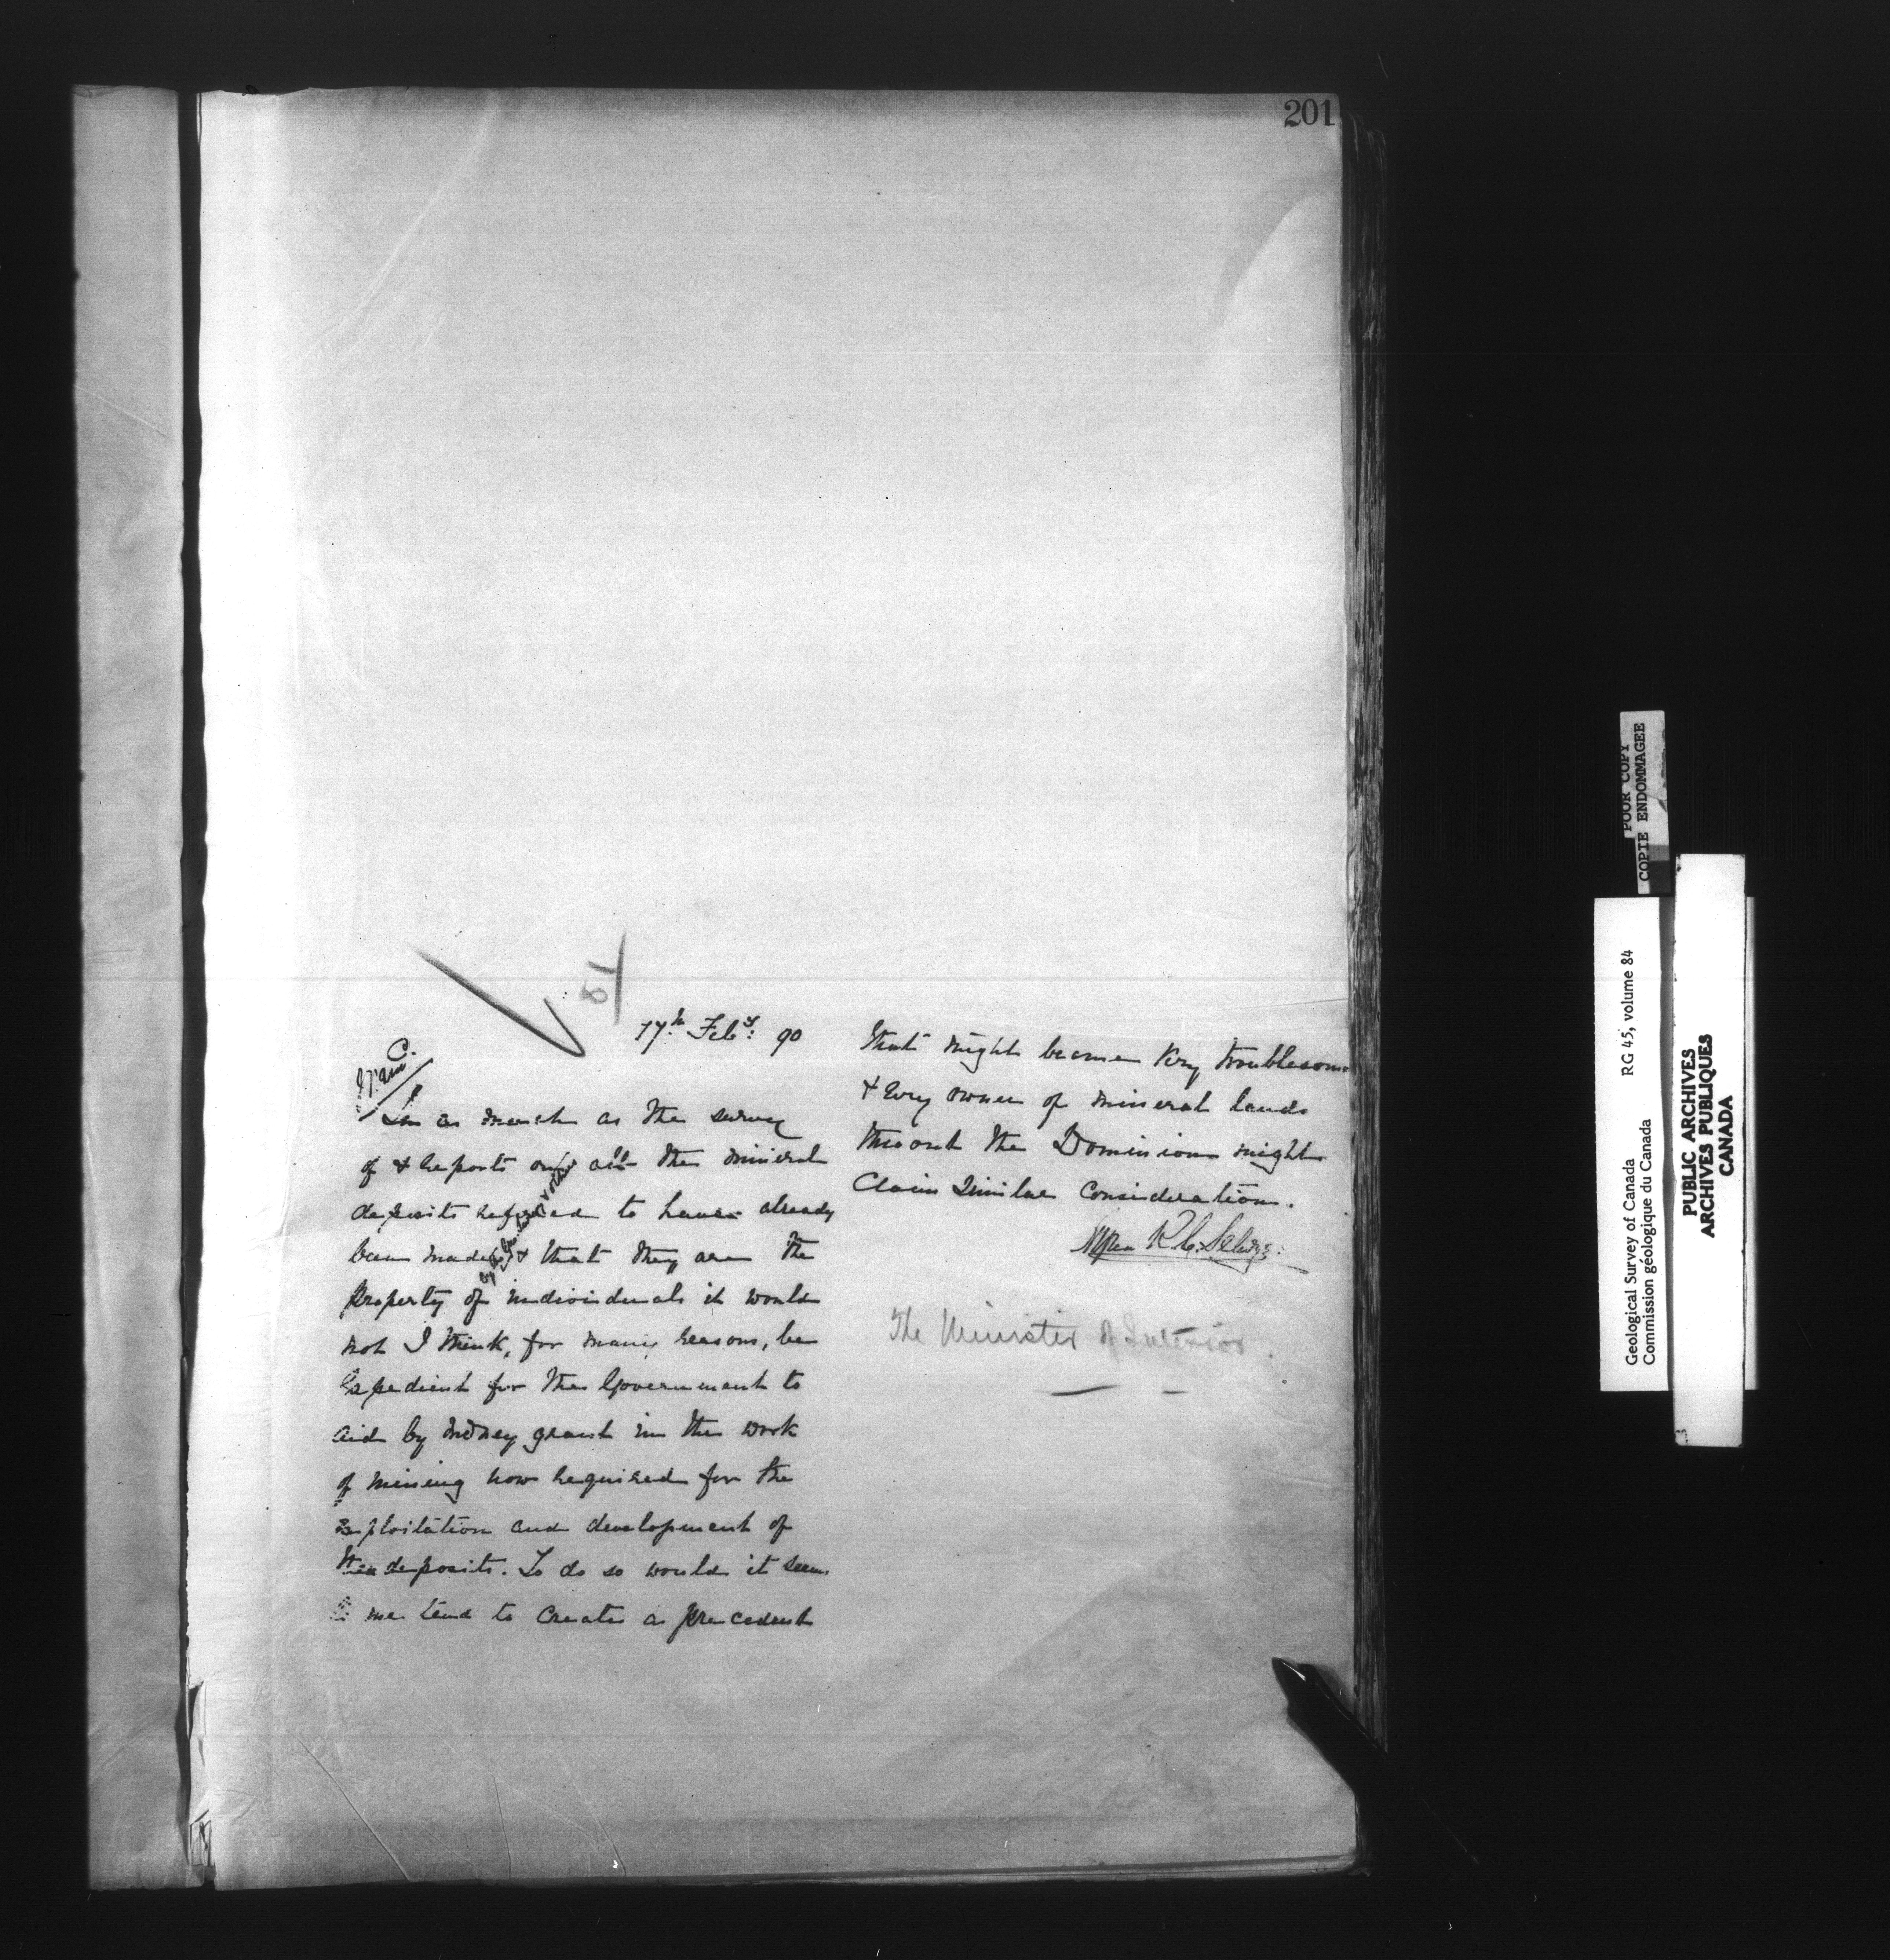 201
17th Feby: 90
C.
In as much as the survey
of & reports on all the mineral
deposits referred to have already
been made & that they are the
property of individuals it would
not I think, for many reasons, be
Expedient for the Government to
aid by money grant in the work
of mining now required for the
Exploitation and development of
these deposits. To do so would it seem
to me tend to Create a precedent
that might become very troublesome
& Every owner of mineral lands
thro out the Dominion might
Claim Similar Consideration.
Alfred R. C. Selwyn
The Minister of Interior.
POOR COPY
COPIE ENDOMMAGEE
Geological Survey of Canada RG 45, volume 84
Commission géologique du Canada
PUBLIC ARCHIVES
ARCHIVES PUBLIQUES
CANADA